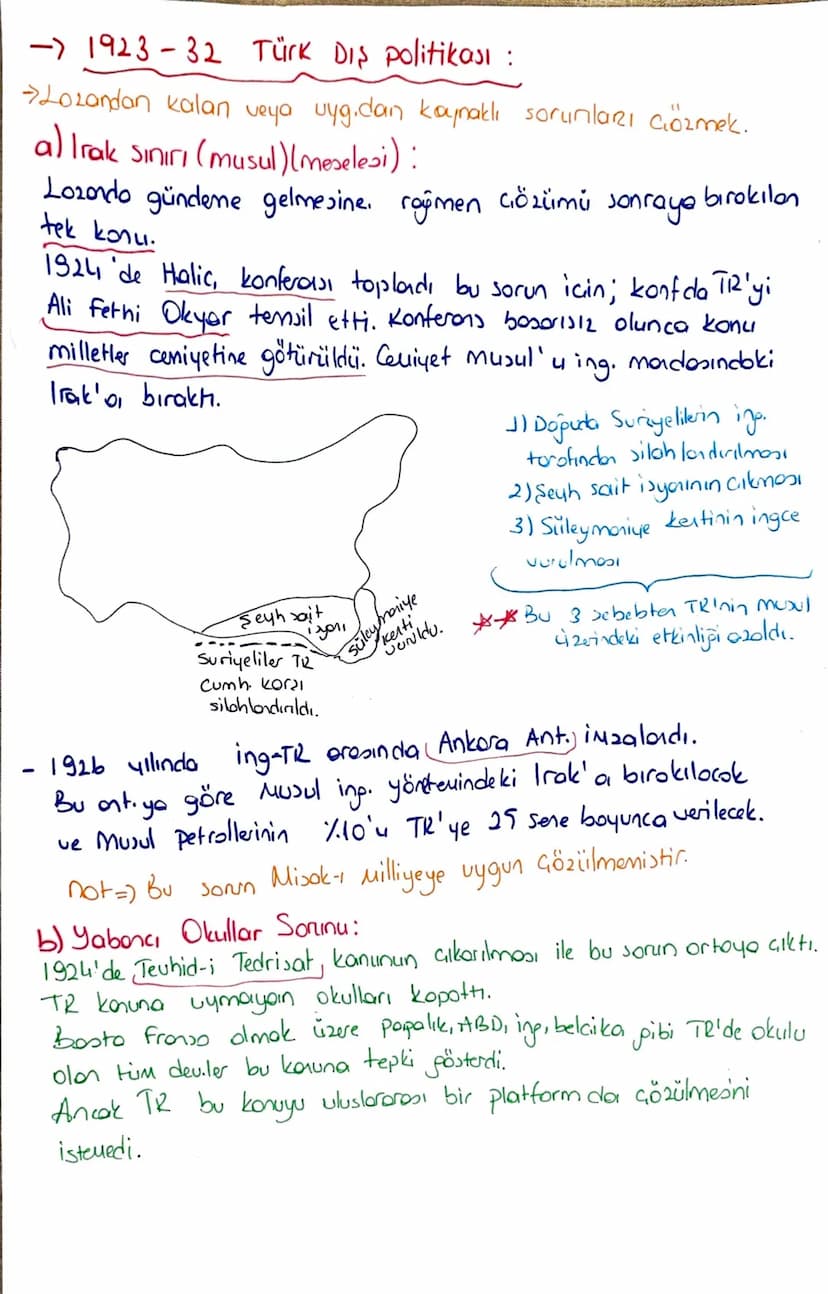 → 1923-32 Türk Dış Politikası :
→ Lozandan kalan veya uyg.dan kaynaklı sorunları Çözmek.
a) Irak sınırı (musul) (meselesi) :
Lozanda gündeme gelmesine rağmen çözümü sonraya bırakılan
tek konu.
1924'de Haliç konferası toplandı bu sorun için; konfda TR'yi
Ali Fethi Okyar temsil etti. Konferans başarısız olunca konu
milletler cemiyetine götürüldü. Cemiyet Musul'u ing. mandasındaki
Irak'a bıraktı.
1) Doğuda Suriyelilerin ing.
tarafından silahlandırılması
2) Şeyh sait isyanının çıkması
3) Süleymaniye kentinin ingce
vurulması
** Bu 3 sebebten TR'nin musul
üzerindeki etkinliği azaldı.
Şeyh sait
isyanı
Süleymaniye
kenti
vuruldu.
Suriyeliler TR
Cumh. karşı
silahlandırıldı.
- 1926 yılında ing-TR arasında (Ankara Ant.) imzalandı.
Bu ant.ya göre Musul ing. yönetimindeki Irak'a bırakılacak
ve Musul petrollerinin %10'u TR'ye 25 sene boyunca verilecek.
not=> Bu sorun Misak-ı Milliyeye uygun Çözülmemiştir.
b) Yabancı Okullar Sorunu:
1924'de Tevhid-i Tedrisat, kanunun çıkarılması ile bu sorun ortaya çıktı.
TR kanuna uymayan okulları kapattı.
başta fransa olmak üzere papalık, ABD, ing, belçika gibi TR'de okulu
olan tüm dev.ler bu kanuna tepki gösterdi.
Ancak TR bu konuyu uluslararası bir platformda çözülmesini
istemedi.